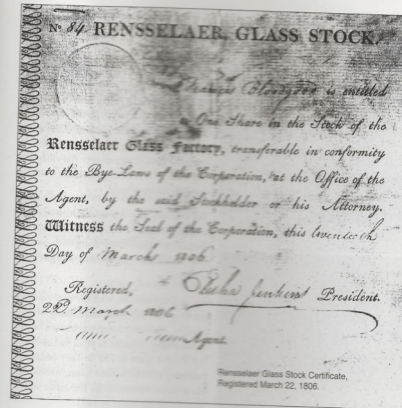 No 84 RENSSELAER GLASS STOCK.
Francis Bloodgood is entitled
One Share in the Stock of the
Rensselaer Glass Factory, transferable in conformity
to the Bye-Laws of the Corporation, at the Office of the
Agent, by the said Stockholder or his Attorney.
Witness the Seal of the Corporation, this twentieth
Day of March 1806
Elisha Jenkins President.
Registered,
22d March 1806
Agent.
Rensselaer Glass Stock Certificate,
Registered March 22, 1806.